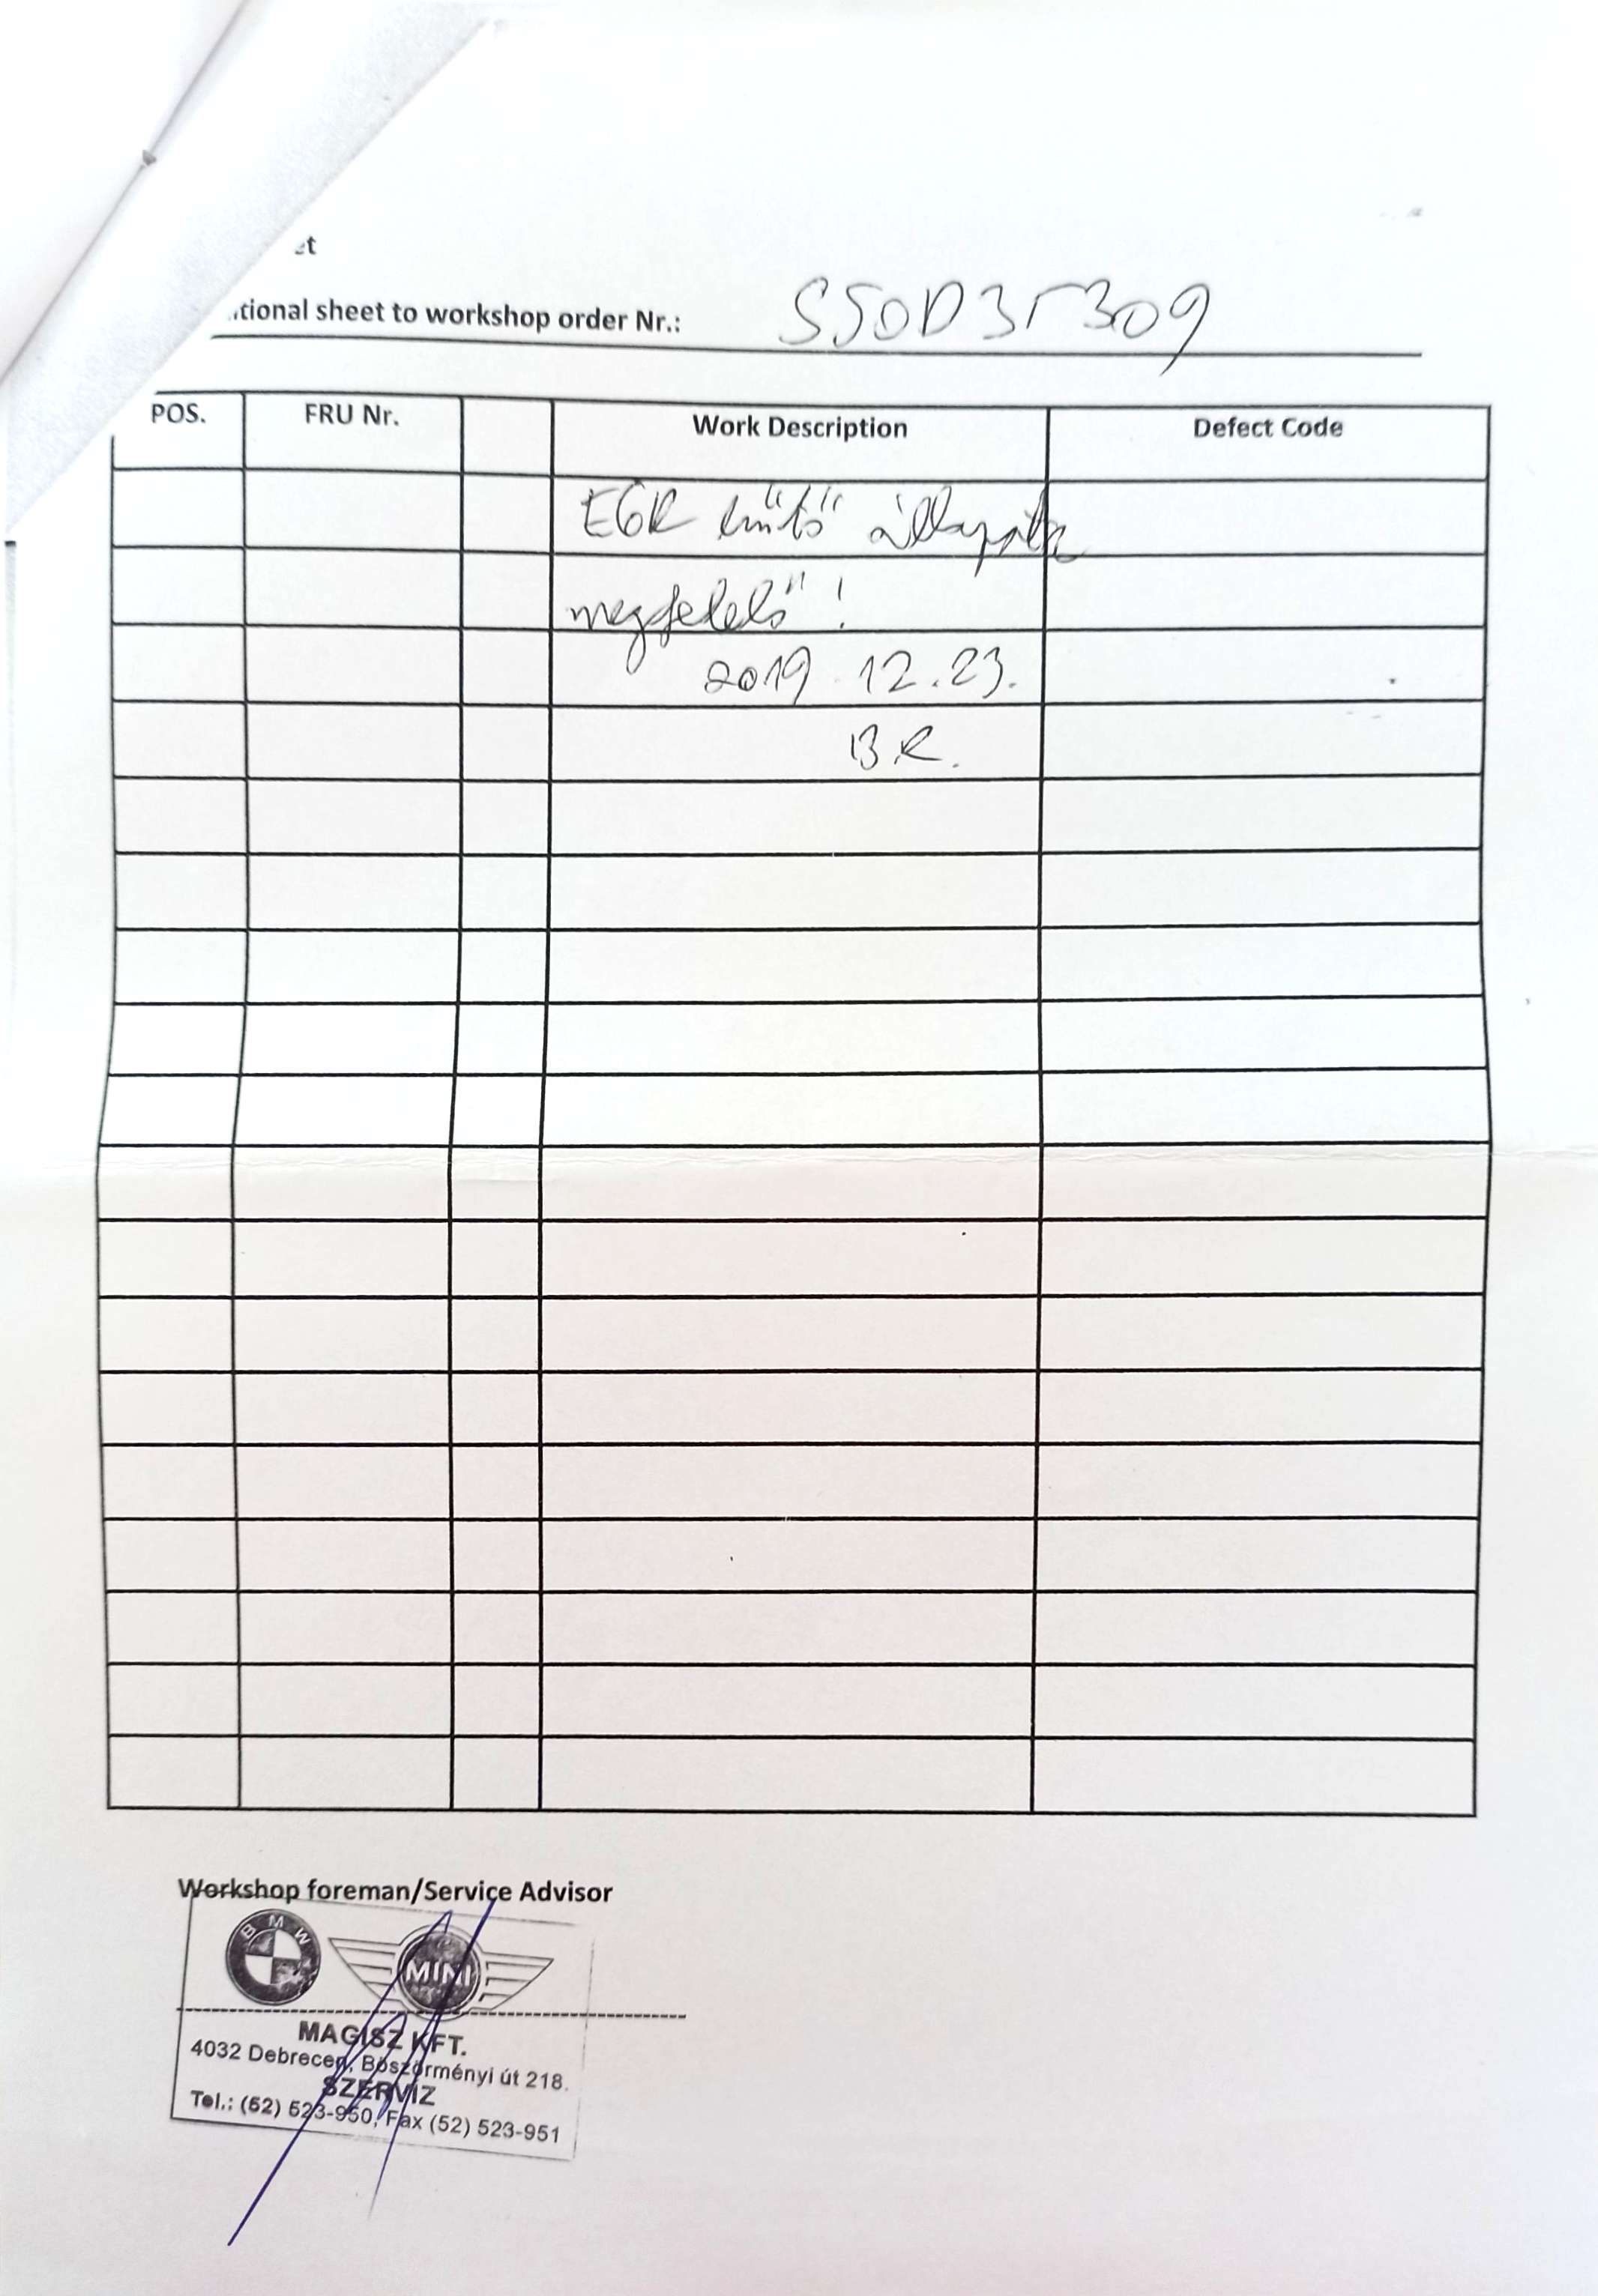 et
tional sheet to workshop order Nr.: S50D35309
POS. FRU Nr. Work Description Defect Code
EGR hűtő állapota
megfelelő!
2019.12.23.
BR.
Workshop foreman/Service Advisor
BMW MINI
MAGISZ KFT.
4032 Debrecen, Böszörményi út 218.
SZERVIZ
Tel.: (52) 523-950, Fax (52) 523-951